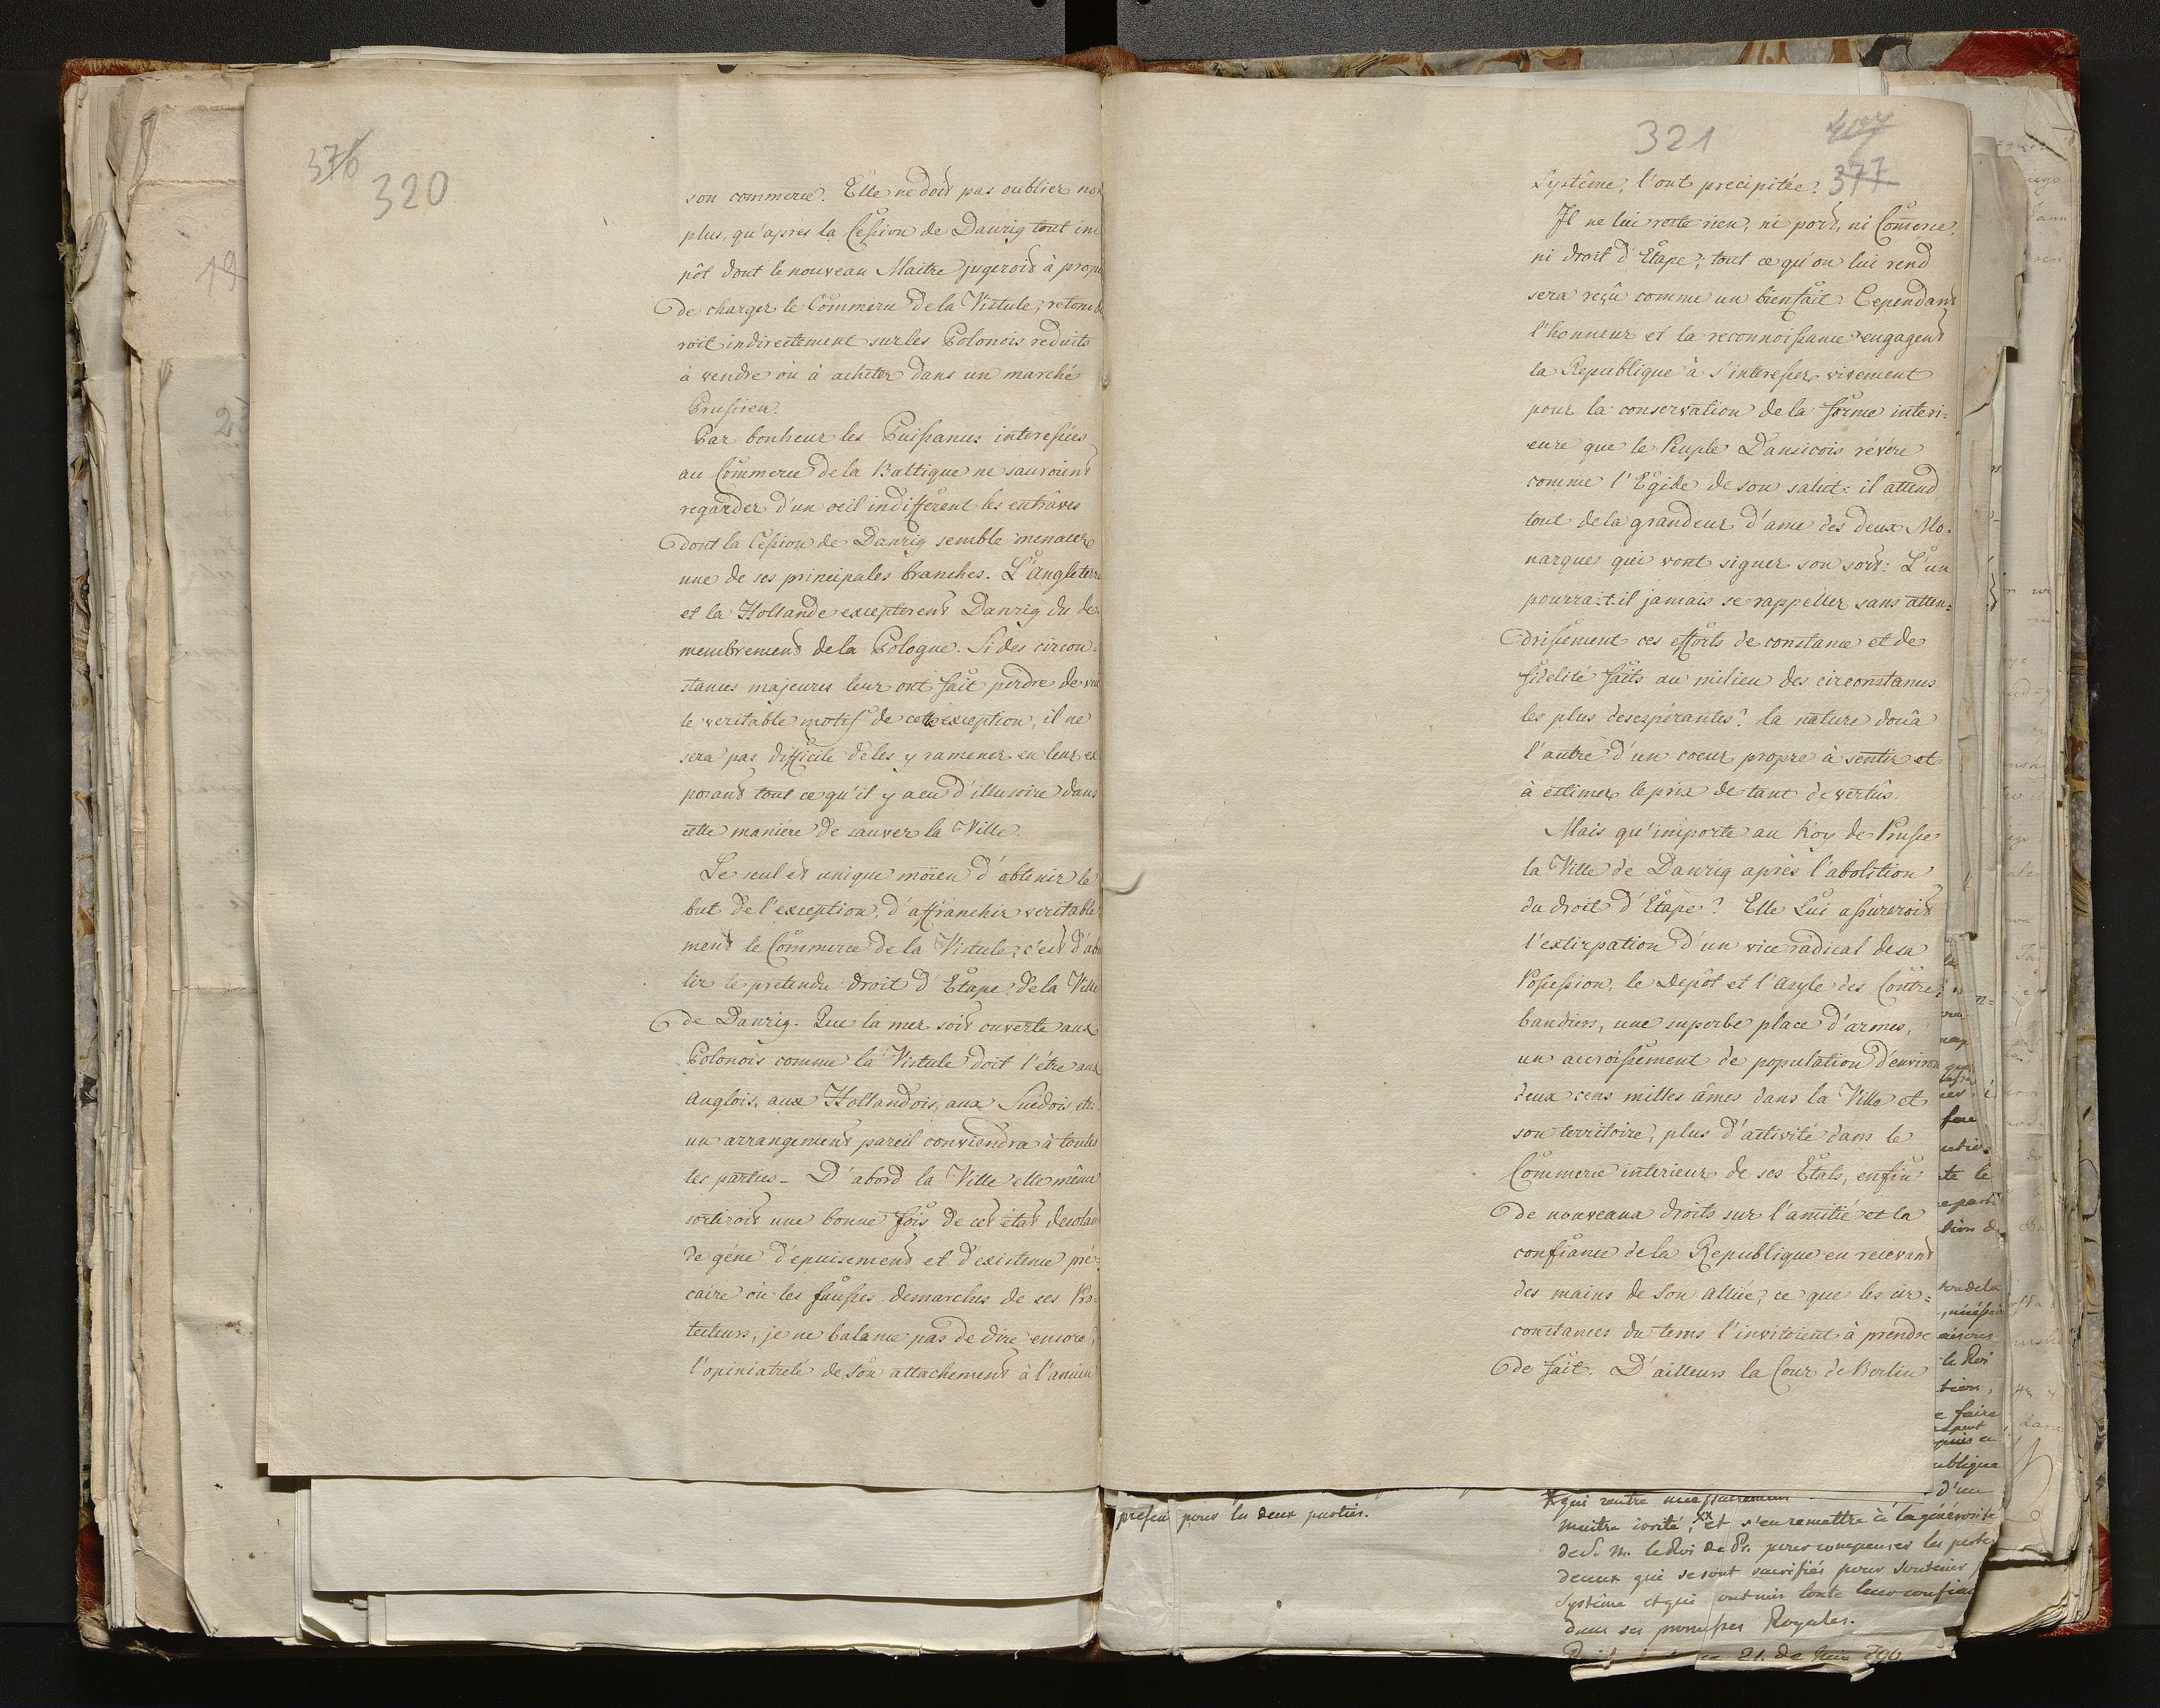 376
320
son commerce. Elle ne doit pas oublier non
plus, qu'apres la Cession de Danzig tout im
pôt dont le nouveau Maitre jugeroit à propo
de charger le Commerce de la Vistule, retombe
roit indirectement sur les Polonois reduits
à vendre ou à acheter dans un marché
Prussien.
Par bonheur les Puissances interessées
au Commerce de la Baltique ne sauroient
regarder d'un oeil indifferent les entrâves
dont la Cession de Danzig semble menacer
une de ses principales branches. L'Angleterre
et la Hollande excepterent Danzig du de-
membrement de la Pologne. Si des circon-
stances majeures leur ont fait perdre de vue
le veritable motif de cette exception, il ne
sera pas difficile de les y ramener en leur ex
posant tout ce qu'il y a eu d'illusoire dans
cette maniére de sauver la Ville.
Le seul et unique moïen d'obtenir le
but de l'exception, d'affranchir veritable
ment le Commerce de la Vistule, c'est d'abo
lir le pretendu droit d'Etape de la Ville
de Danzig. Que la mer soit ouverte aux
Polonois comme la Vistule doit l'étre aux
Anglois, aux Hollandois, aux Suedois, etc:
un arrangement pareil conviendra à toutes
les parties - D'abord la Ville elle même
sortiroit une bonne fois de cet état desolant
de géne d'épuisement et d'existence pré-
caire où les fausses demarches de ses Pro-
tecteurs, je ne balance pas de dire encore,
l'opiniatreté de son attachement à l'ancien
321
377
Systême, l'ont precipitée?
Il ne lui reste rien, ni port, ni Comerce,
ni droit d'Etape; tout ce qu'on lui rend
sera reçû comme un bienfait. Cependant
l'honneur et la reconnoissance engagent
la Republique à s'interesser vivement
pour la conservation de la forme interi=
eure que le Peuple Dansicois révére
comme l'Egide de son salut: il attend
tout de la grandeur d'ame des deux Mo-
narques qui vont signer son sort: L'un
pourrait-il jamais se rappeller sans atten=
drissement ces efforts de constance et de
fidelité faits au milieu des circonstances
les plus desespérantes? la nature douâ
l'autre d'un coeur propre à sentir et
à estimer le prix de tant de vertûs.
Mais qu'importe au Roy de Prusse
la Ville de Danzig après l'abolition
du droit d'Etape? Elle Lui assureroit
l'extirpation d'un vice radical de sa
Possession, le Depôt et l'Asyle des Contre-
bandiers, une superbe place d'armes,
un accroissement de population d'environ
deux cens milles âmes dans la Ville et
son territoire, plus d'activité dans le
Commerce interieur de ses Etats, enfin
de nouveaux droits sur l'amitié et la
confiance de la Republique en recevant
des mains de son alliée, ce que les cir=
constances du tems l'invitoient à prendre
de fait. D'ailleurs la Cour de Berlin
pour les deux parties.
qui rentre
maitre et s'en remettre à la générosité
de S. M. le Roi de Pr. pour compenser les pertes
de ceux qui se sont sacrifiés pour soutenir
Systême et qui ont mis toute leur
dans ses promesses Royales.
21. de